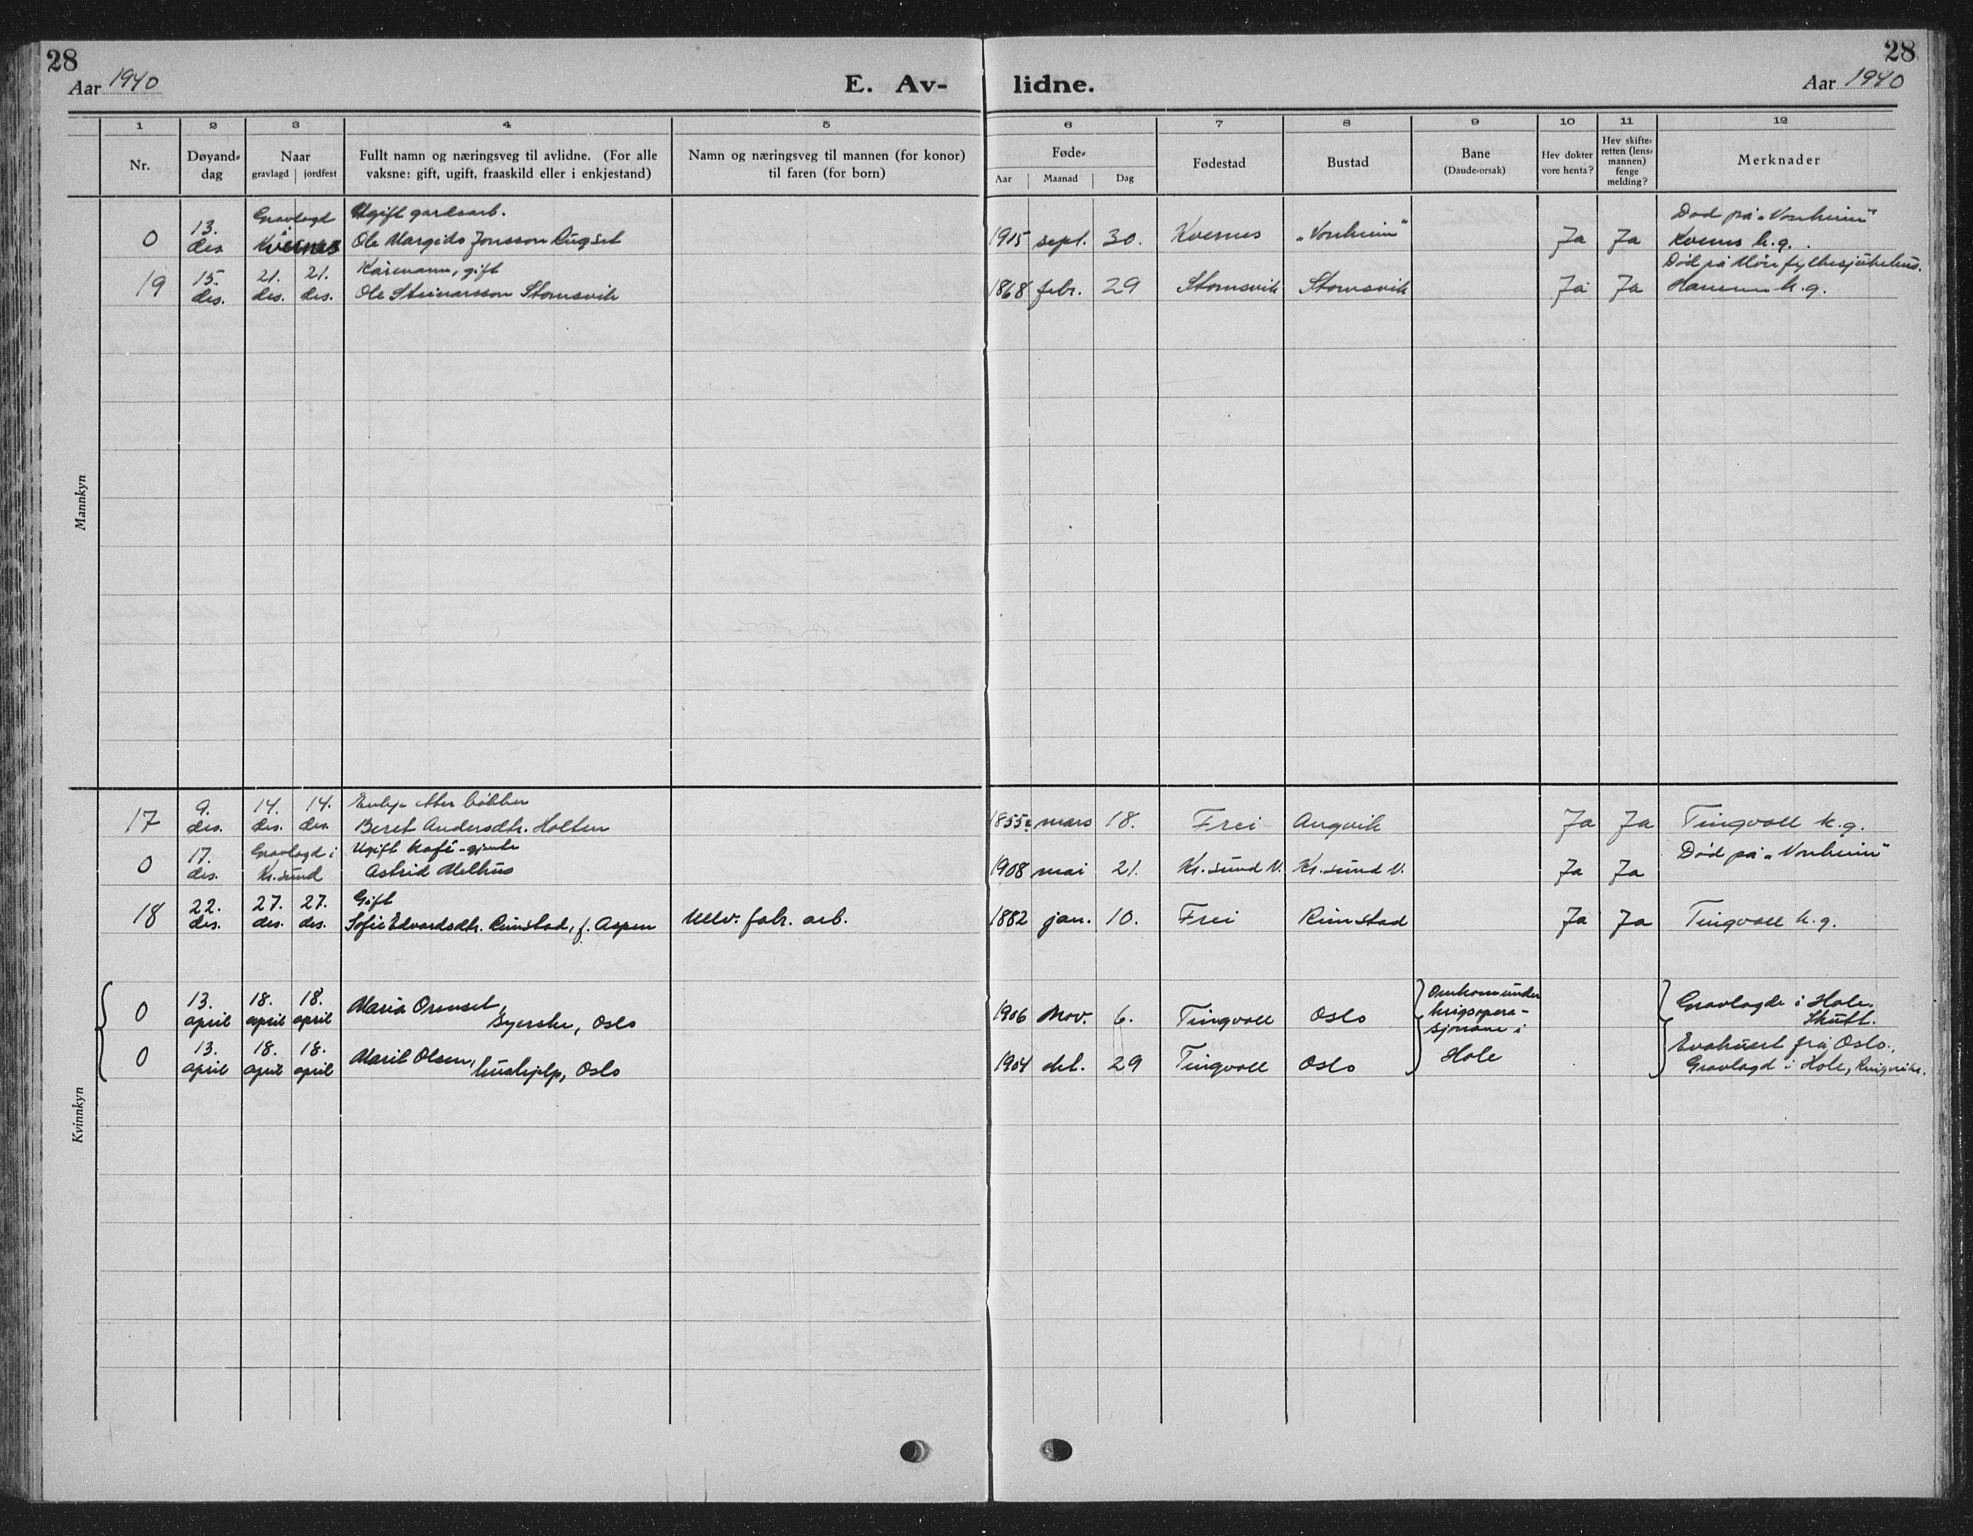 28
Aar 1940
E. Av-
lidne.
28
Aar 1940
1 2 3 4 5 6 7 8 9 10 11 12
Nr.
Døyand-
dag
Naar
gravlagd jordfest
Fullt namn og næringsveg til avlidne. (For alle
vaksne: gift, ugift, fraaskild eller i enkjestand)
Namn og næringsveg til mannen (for konor)
til faren (for born)
Føde-
Aar Maanad Dag
Fødestad
Bustad
Bane
(Daude-orsak)
Hev dokter
vore henta?
Hev skifte-
retten (lens-
mannen)
fenge
melding?
Merknader
Mannkyn
Gravlagd Ugift gardsarb. Død på „Vonheim"
0 13. des. Kvernes Ole Margido Jonsson Rugset 1915 sept. 30. Kvernes „Vonheim" Ja Ja k.g.
Kårmann, gift Død på Møre fylkessjukehus.
19 15. des. 21. des. 21. des. Ole Steinarsson Stomsvik 1868 febr. 29 Stomsvik Stomsvik Ja Ja k.g.
Enkje etter
17 9. des. 14. des. 14. des. Beret Andersdtr. Holten 1855 mars 18. Frei Angvik Ja Ja Tingvoll k.g.
Gravlagd i Ugift kafé- Død på „Vonheim"
0 17. des. Kr.sund Astrid Melhus 1908 mai 21. Kr.sund N. Kr.sund N. Ja Ja
Gift
18 22. des. 27. des. 27. des. Sofie Edvardsdtr. Rimstad, f. Aspen fabr. arb. 1882 jan. 10. Frei Rimstad Ja Ja Tingvoll k.g.
Kvinnkyn
0 13. april 18. april 18. april Maria Orenset, Oslo 1906 Nov. 6. Tingvoll Oslo Omkom under Gravlagde i Hole.
krigsopera-
sjonane i
0 13. april 18. april 18. april Marit Olsen, hushjelp, Oslo 1904 29 Tingvoll Oslo Hole Evakuert frå Oslo.
Gravlagd i Hole, Ringerike.